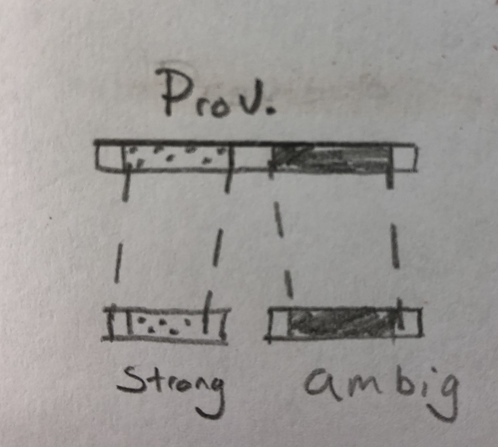 Prov.
Strong
ambig